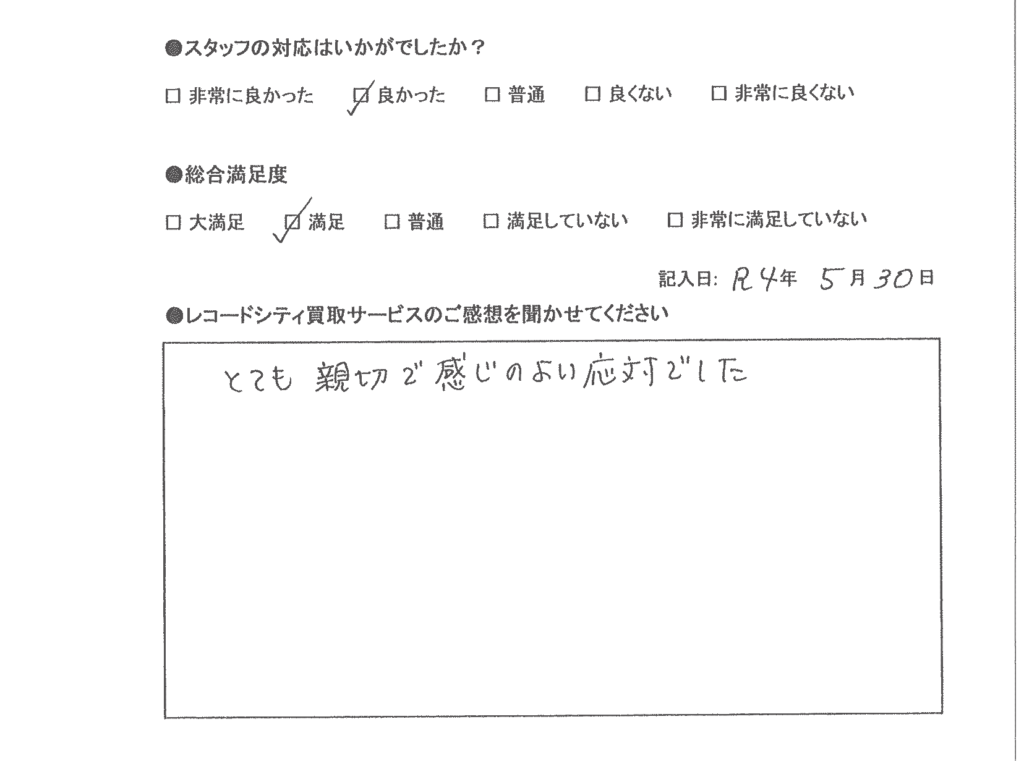 ●スタッフの対応はいかがでしたか？
□ 非常に良かった ☑ 良かった □ 普通 □ 良くない □ 非常に良くない
●総合満足度
□ 大満足 ☑ 満足 □ 普通 □ 満足していない □ 非常に満足していない
記入日: R4年 5月30日
●レコードシティ買取サービスのご感想を聞かせてください
とても親切で感じのよい応対でした